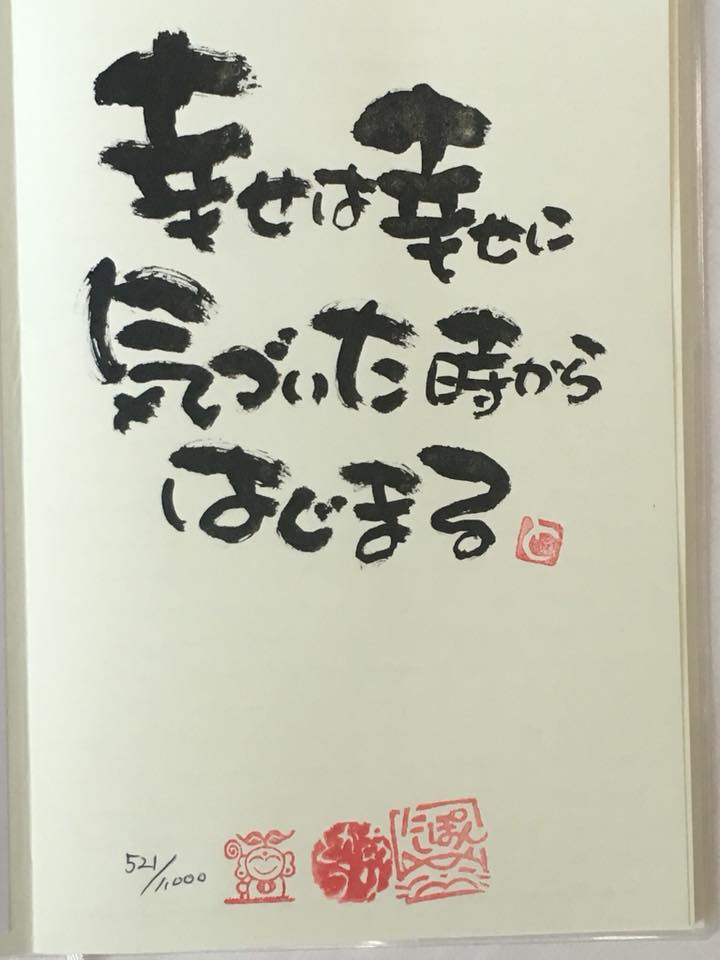 幸せは幸せに
気づいた時から
はじまる
521/1,000
にしぽん